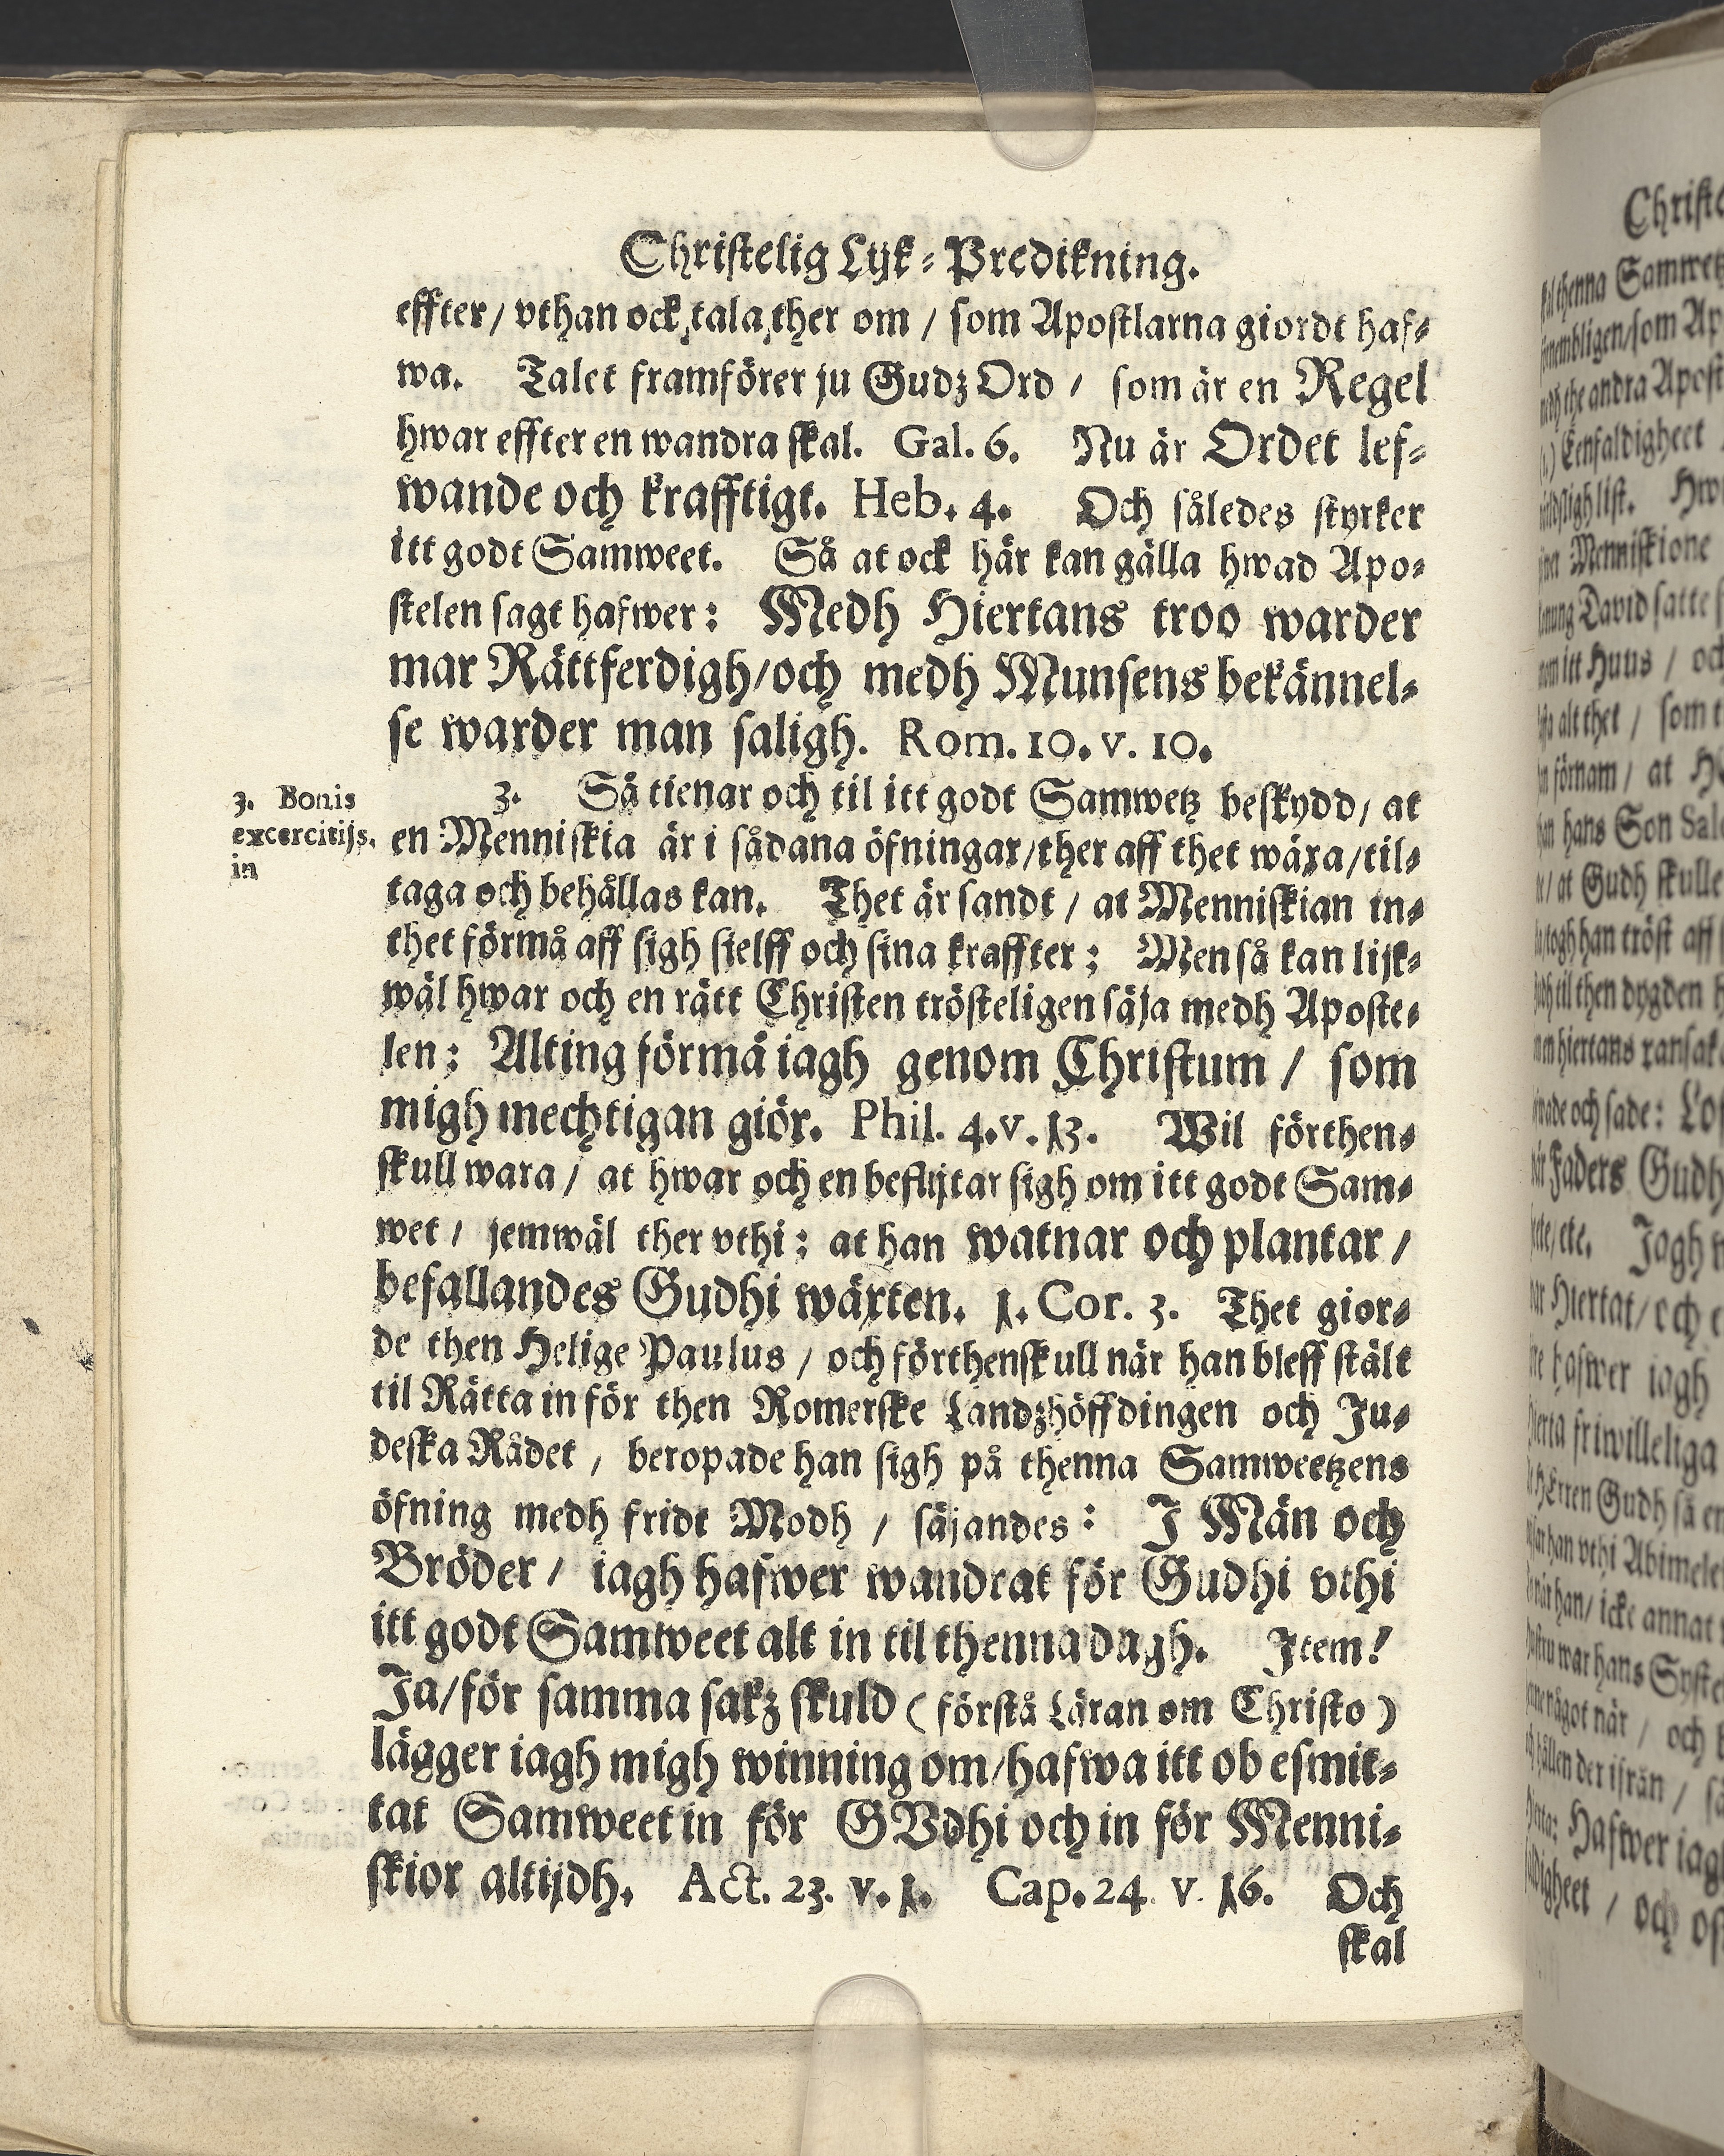 Christelig Lijk-Predikning.
effter/ vthan ock tala ther om / som Apostlarna giordt haf-
wa. Talet framförer ju Gudz Ord / som är en Regel
hwar effter en wandra skal. Gal. 6. Nu är Ordet lef-
wande och krafftigt. Heb. 4. Och således styrker
itt godt Samweet. Så at ock här kan gälla hwad Apo-
stelen sagt hafwer: Medh Hiertans troo warder
mar Rättferdigh/och medh Munsens bekännel-
se warder man saligh. Rom. 10. v. 10.
3. Bonis
excercitijs.
in
3. Så tienar och til itt godt Samwetz beskydd/ at
en Menniskia är i sådana öfningar/ther aff thet wäxa/til-
taga och behållas kan. Thet är sandt / at Menniskian in-
thet förmå aff sigh sielff och sina kraffter; Men så kan lijk-
wäl hwar och en rätt Christen trösteligen säja medh Aposte-
len: Alting förmå iagh genom Christum / som
migh mechtigan giör. Phil. 4. v. 13. Wil förthen-
skull wara / at hwar och en beflijtar sigh om itt godt Sam-
wet / jemwäl ther vthi: at han watnar och plantar /
befallandes Gudhi wäxten. 1. Cor. 3. Thet gior-
de then Helige Paulus / och förthenskull när han bleff stält
til Rätta in för then Romerske Landzhöffdingen och Ju-
deska Rådet / beropade han sigh på thenna Samweetzens
öfning medh fridt Modh / säjandes: J Män och
Bröder / iagh hafwer wandrat för Gudhi vthi
itt godt Samweet alt in til thenna dagh. Jtem!
Ja/för samma sakz skuld (förstå Läran om Christo)
lägger iagh migh winning om/hafwa itt ob esmit-
tat Samweet in för GVdhi och in för Menni-
skior altijdh. Act. 23. v. 1. Cap. 24 v. 16. Och
skal